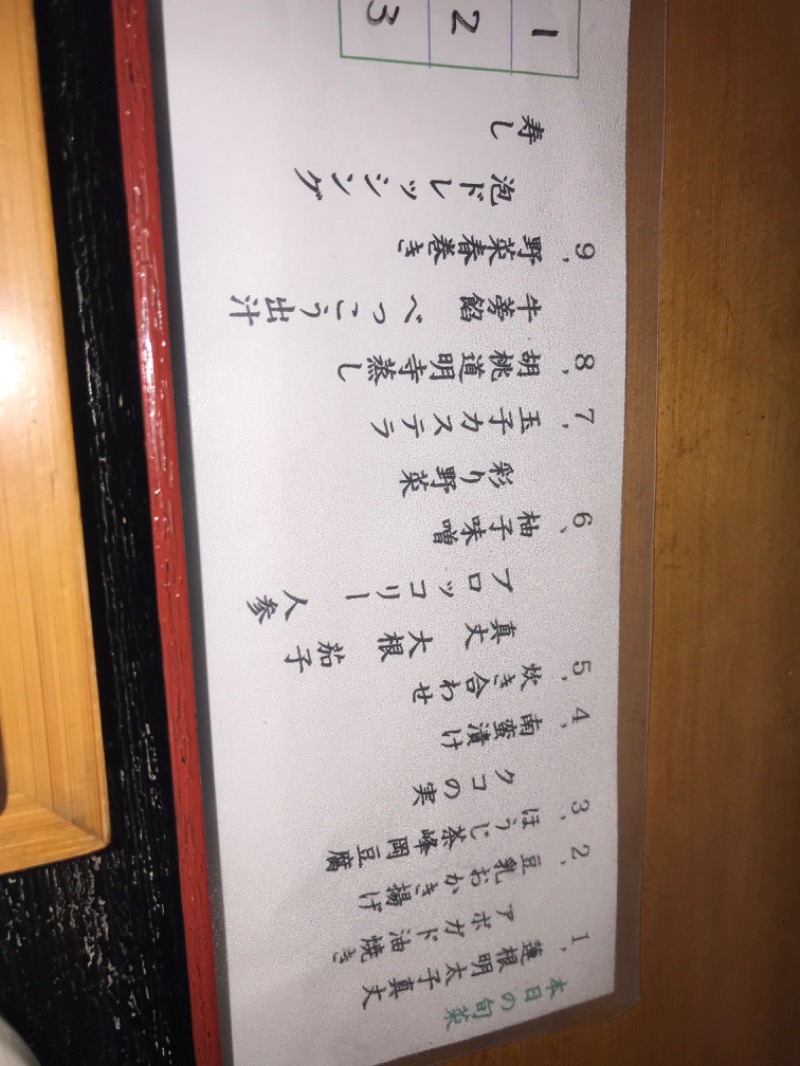 本日の旬菜
1, 蓮根明太子真丈
アボガド油焼き
2, 豆乳おかき揚げ
3, ほうじ茶峰岡豆腐
クコの実
4, 南蛮漬け
5, 炊き合わせ
真丈 大根 茄子
ブロッコリー 人参
6、柚子味噌
彩り野菜
7, 玉子カステラ
8, 胡桃道明寺蒸し
牛蒡餡 べっこう出汁
9, 野菜春巻き
泡ドレッシング
寿し
1
2
3